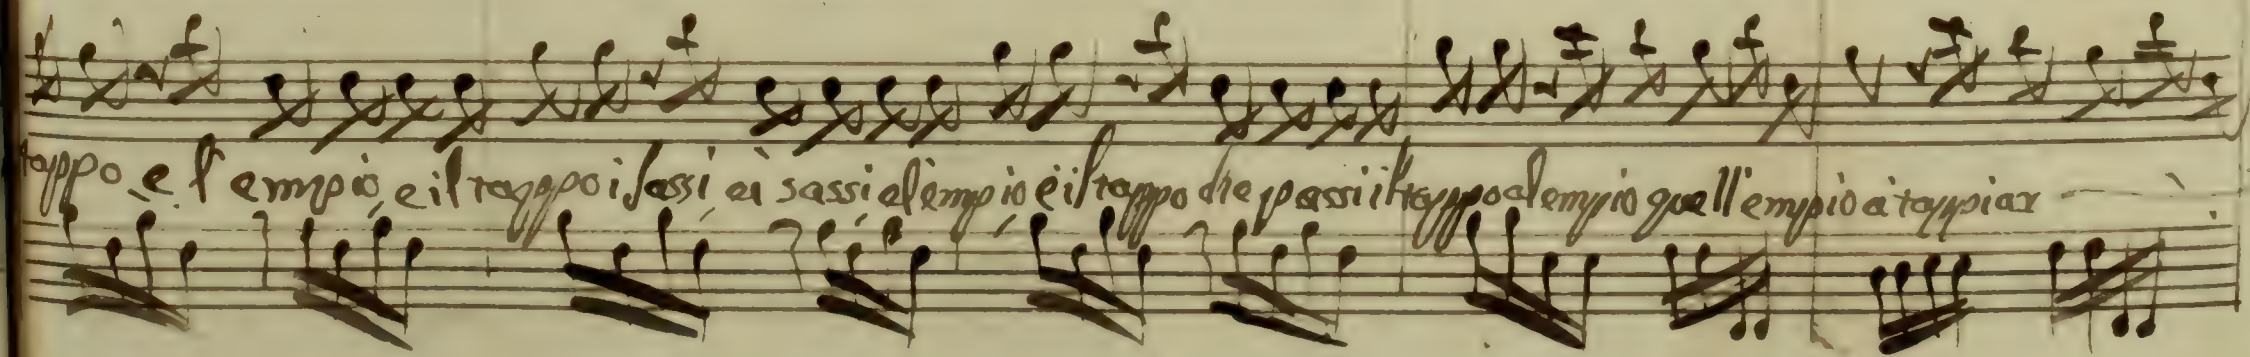 tappo, e l'empio, e il tappo i sassi ei sassi el'empio e il tappo che passi il tappo el empio quell'empio à tappiar